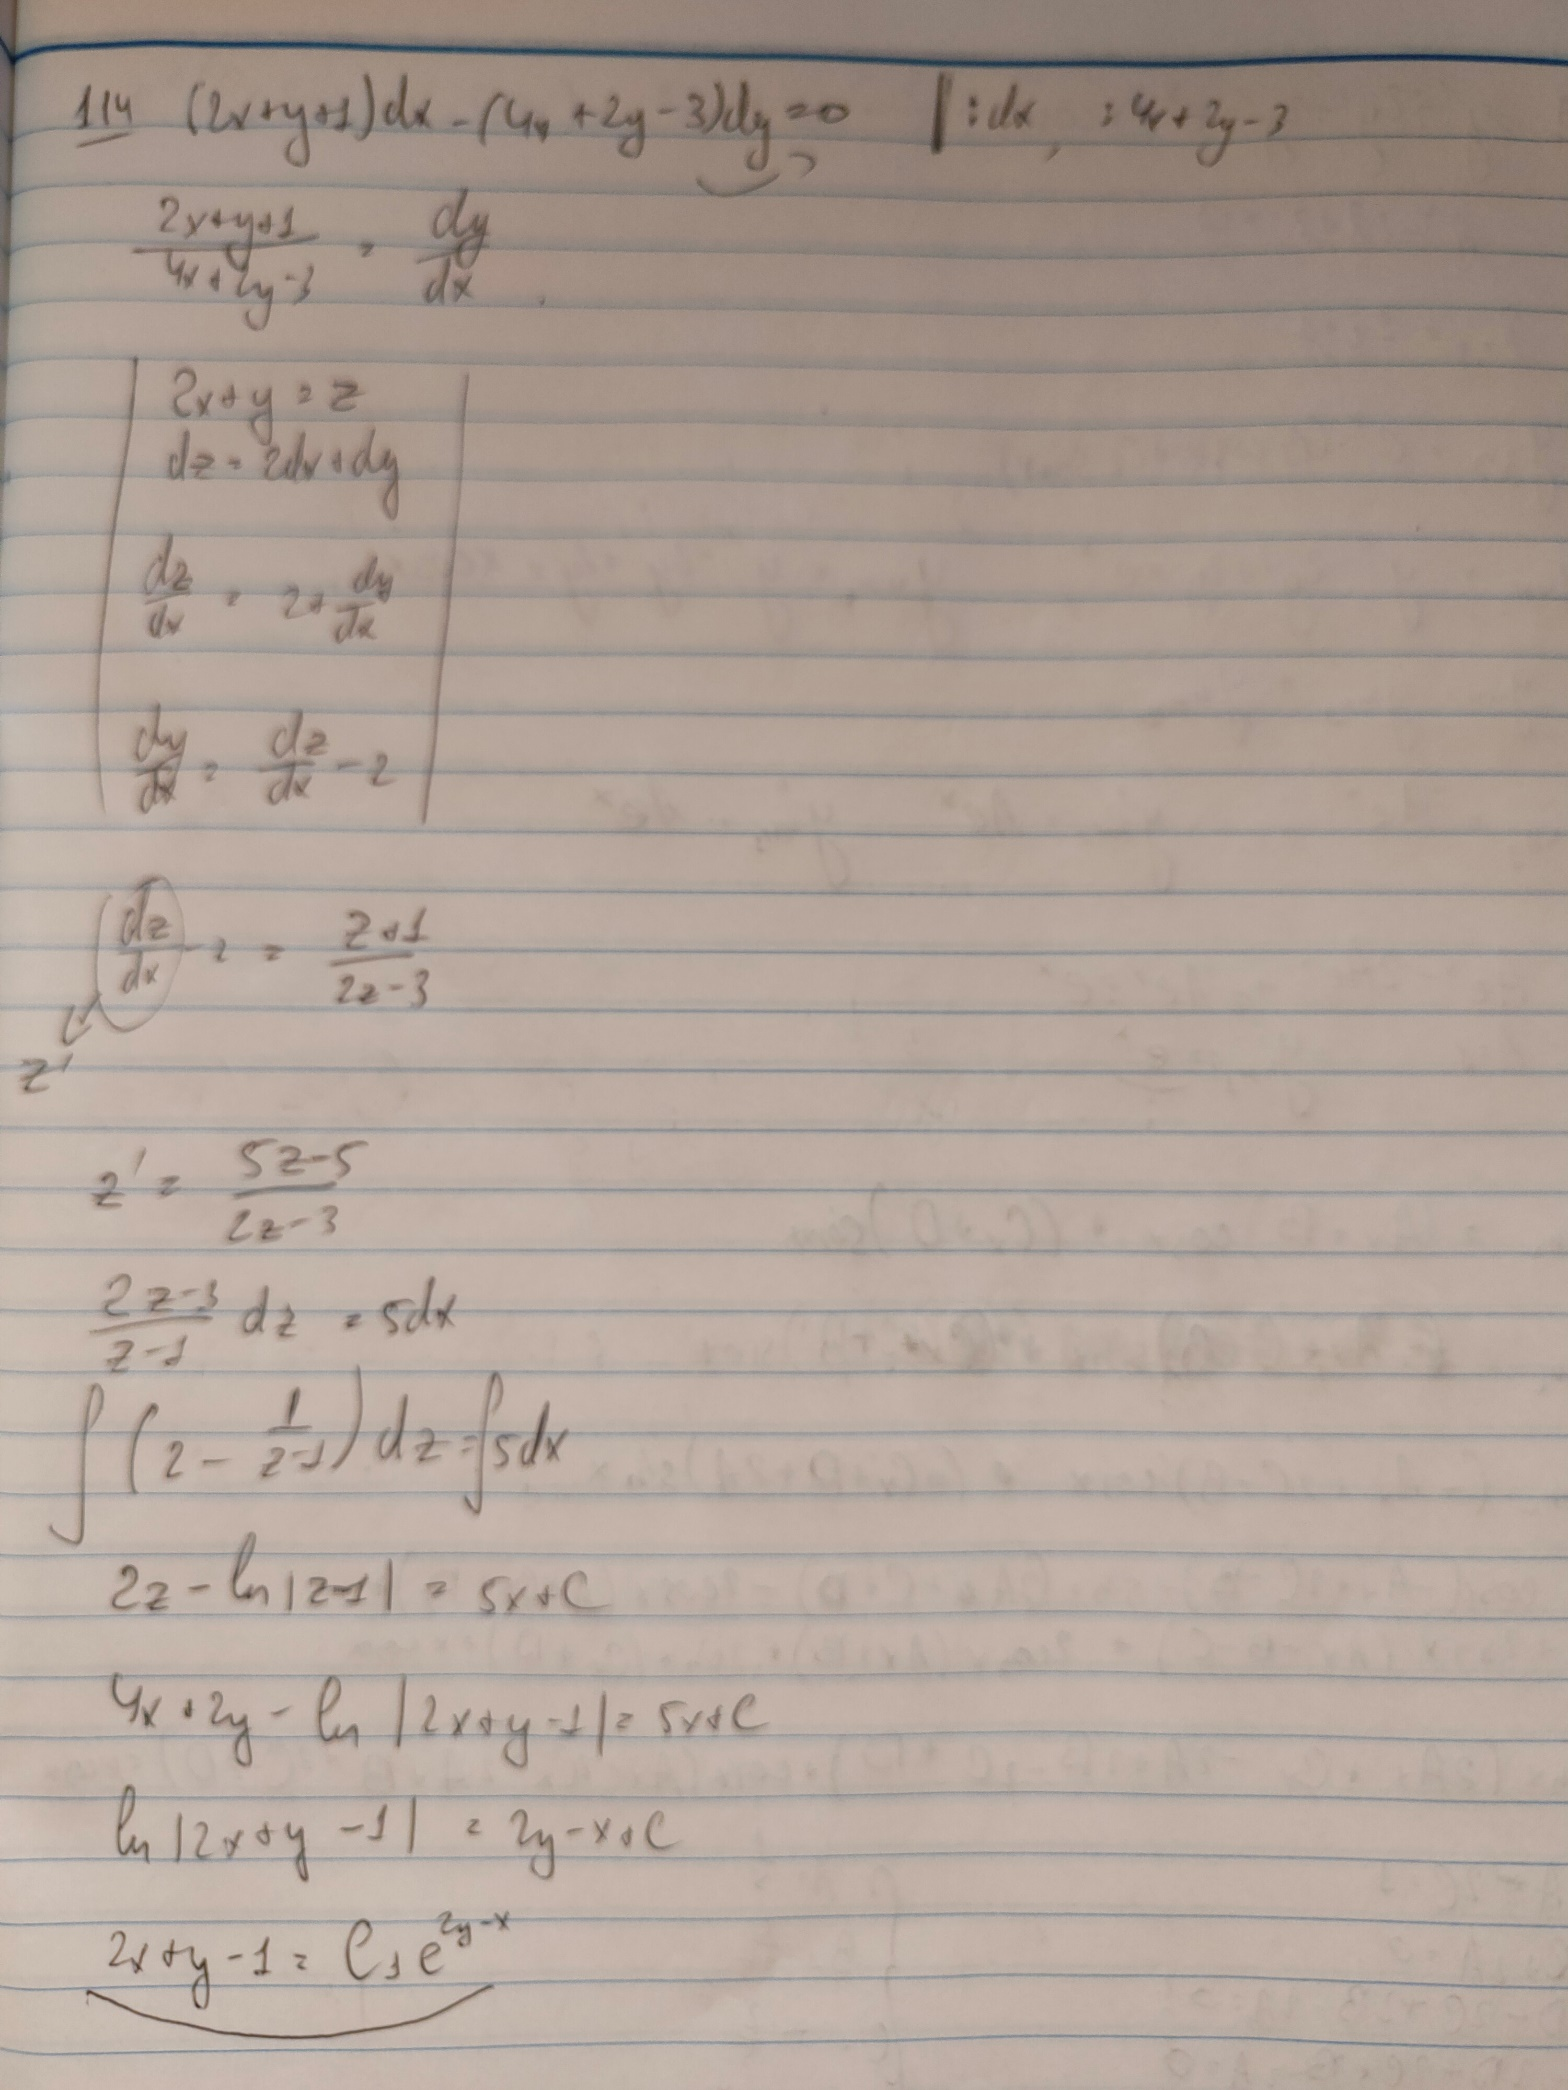 114 (2x+y+1)dx-(4x+2y-3)dy=0 |:dx, :4x+2y-3
(2x+y+1)/(4x+2y-3) = dy/dx
2x+y=z
dz=2dx+dy
dz/dx = 2+dy/dx
dy/dx = dz/dx -2
dz/dx -2 = (z+1)/(2z-3)
z'
z' = (5z-5)/(2z-3)
(2z-3)/(z-1) dz = 5dx
∫(2-1/(z-1))dz=∫5dx
2z-ln|z-1| = 5x+C
4x+2y-ln|2x+y-1|=5x+C
ln|2x+y-1| = 2y-x+C
2x+y-1=C₁e^(2y-x)